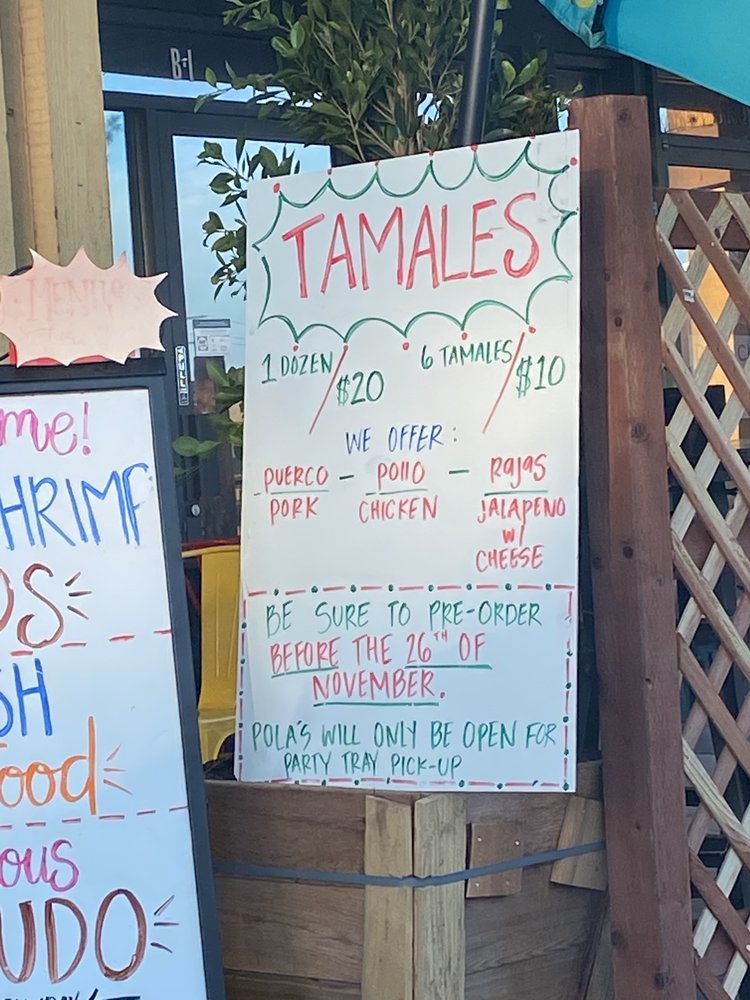 B-1
MENUS
TAMALES
1 DOZEN/$20 6 TAMALES/$10
WE OFFER:
PUERCO - POLLO - RAJAS
PORK CHICKEN JALAPENO
W/
CHEESE
BE SURE TO PRE-ORDER
BEFORE THE 26TH OF
NOVEMBER.
POLA'S WILL ONLY BE OPEN FOR
PARTY TRAY PICK-UP
me!
HRIMP
OS
SH
ood
ous
UDO
PULL